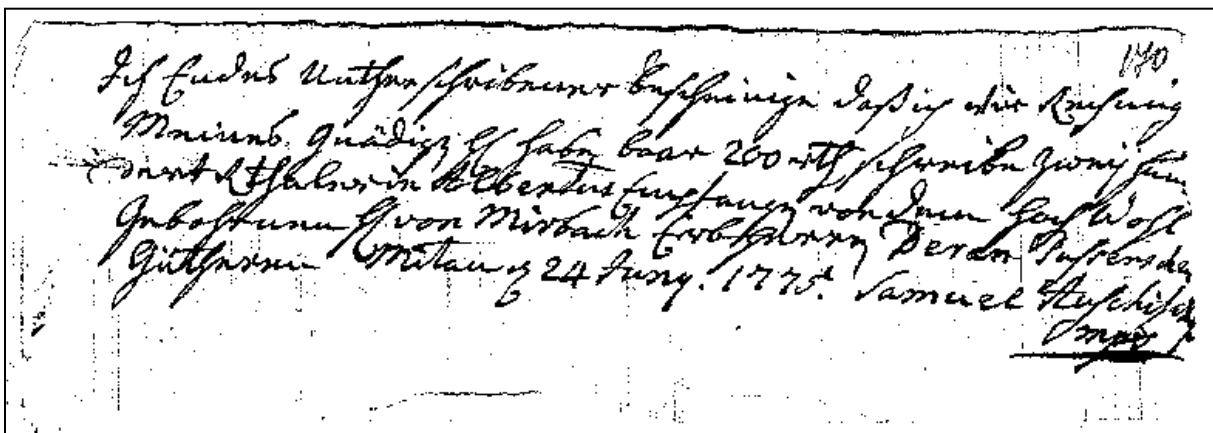 170
Ich Endes Untherschribener bescheinige daß ich vür Rechnung
Meines Gnädigen H habe baar 200 rth schreibe zweÿ hun
dert Rthaler in Albertus Empfangen von dem Hoch Wohl
Gebohrenen H von Mirbach Erbherren Deren
Gütheren Mitau d 24 Juny. 1775. Samuel
mpr